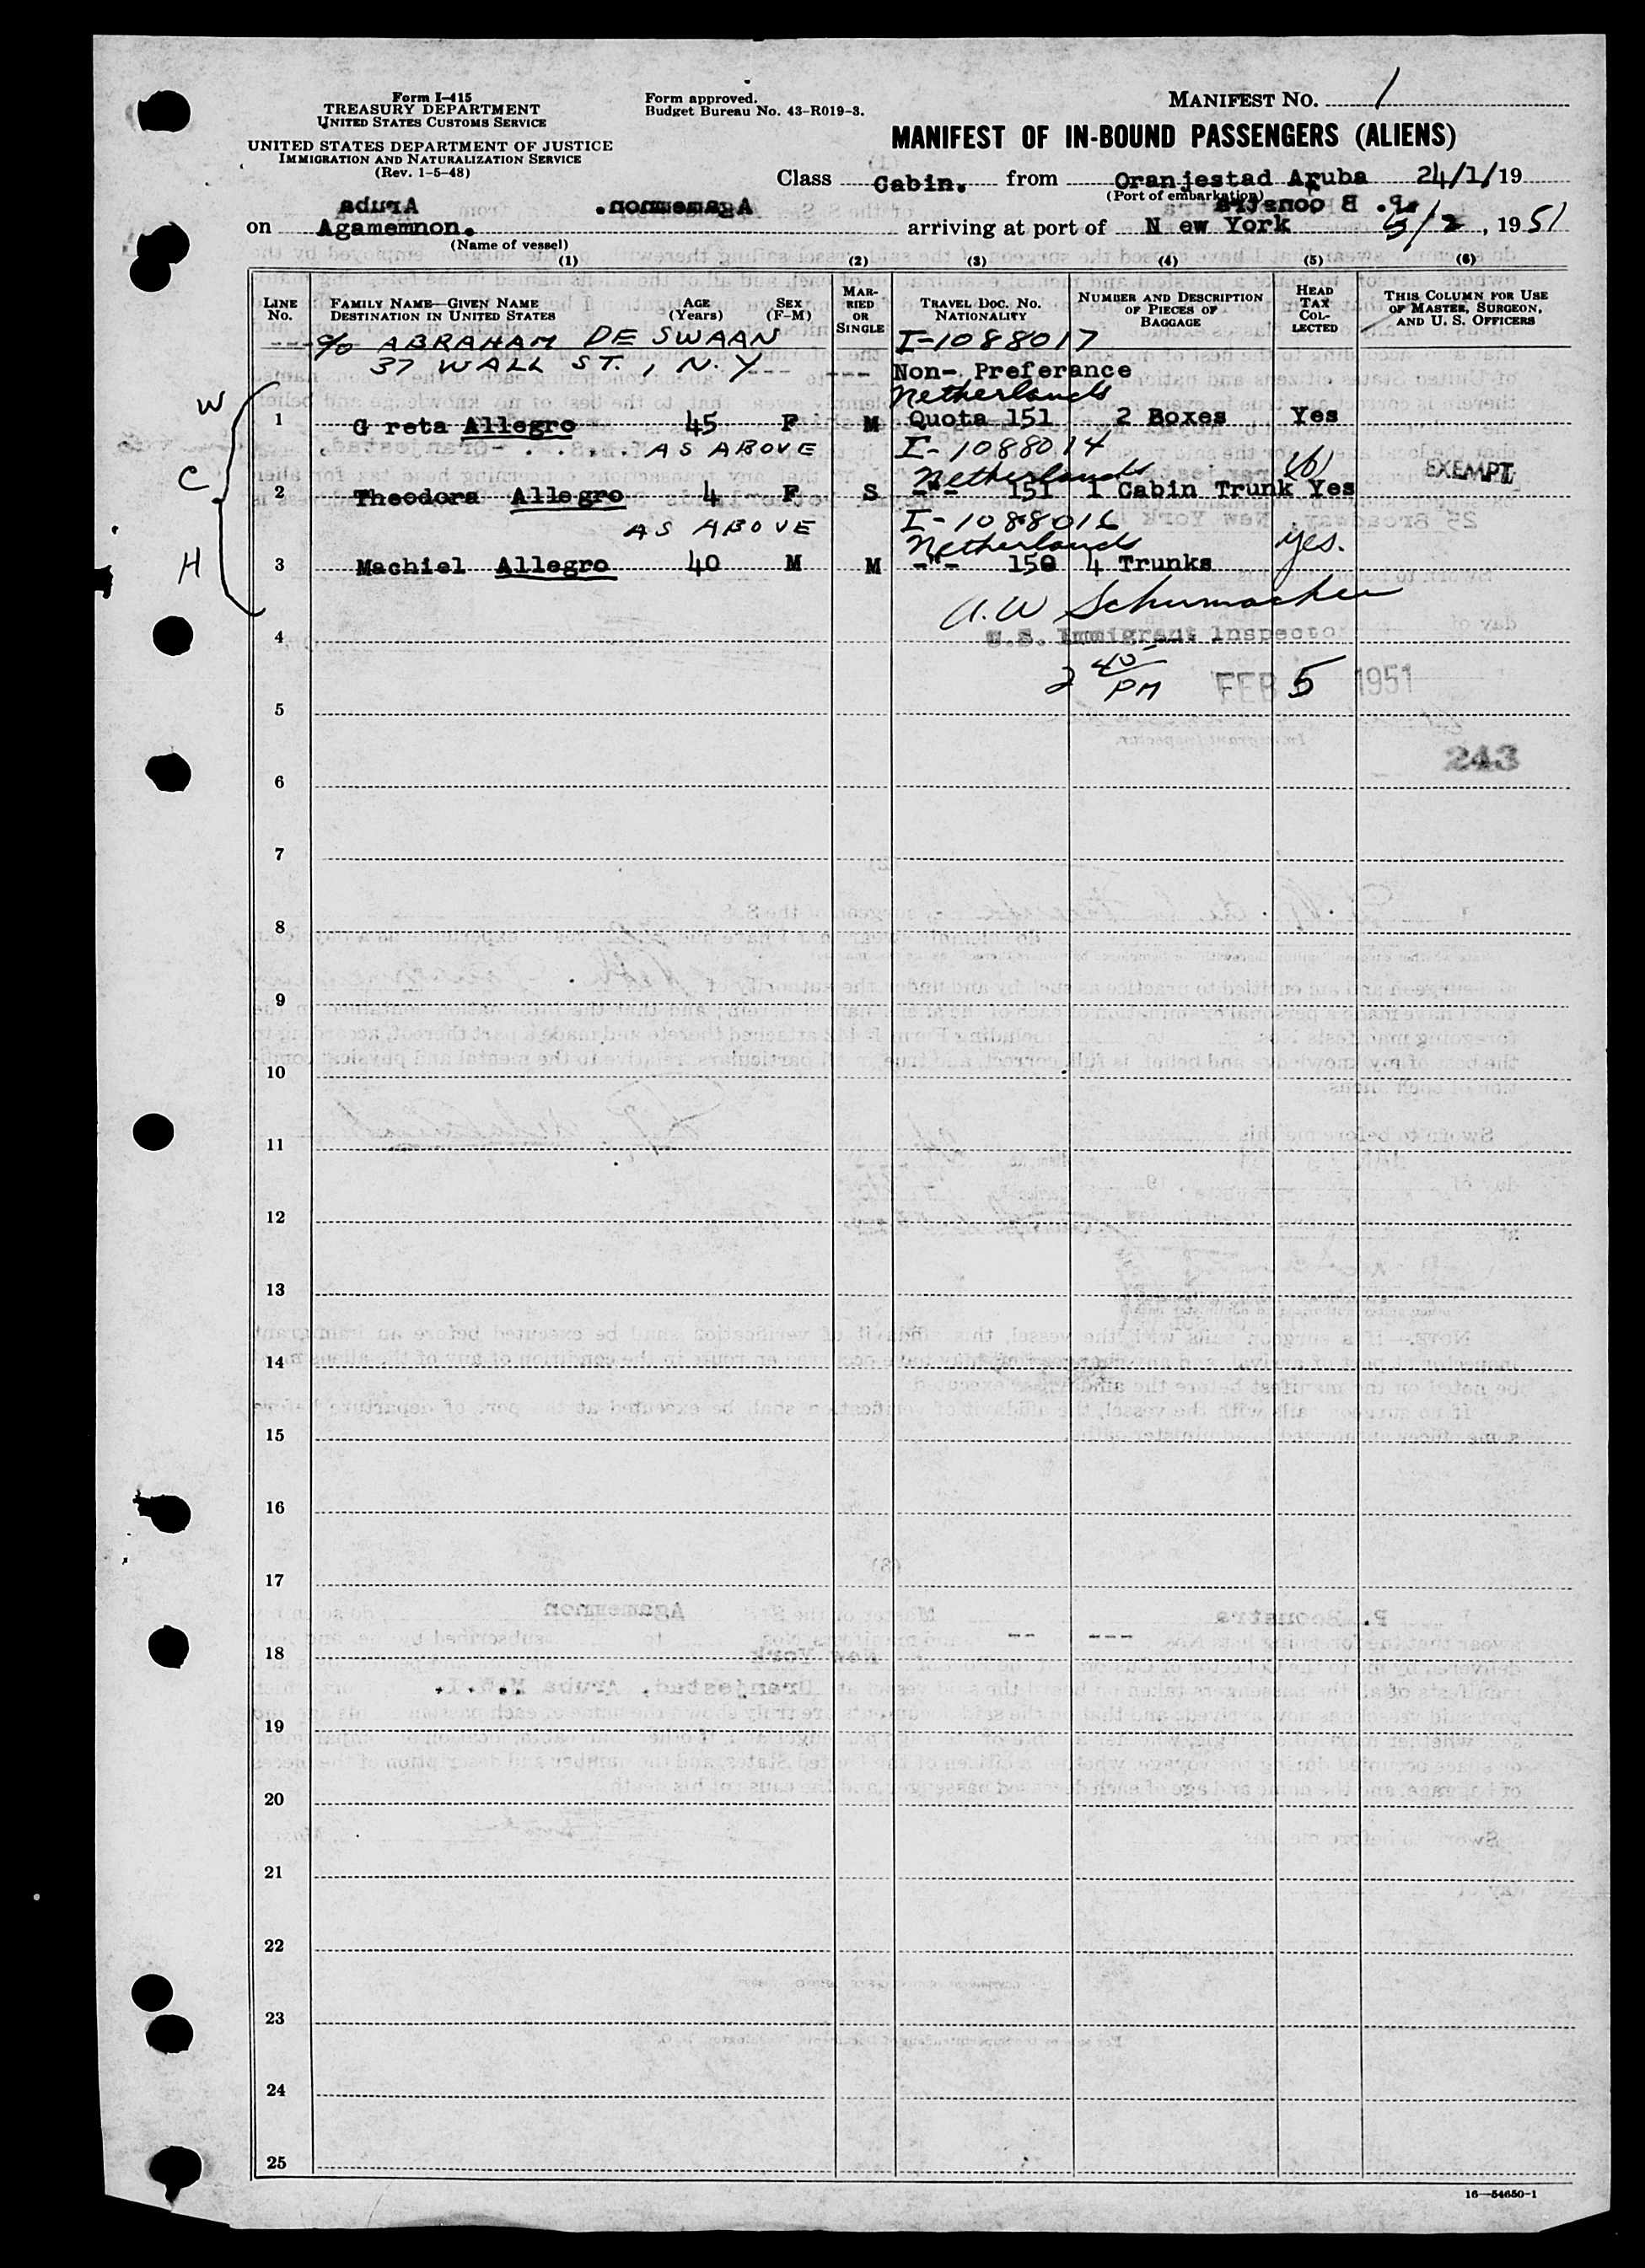 Form I-415
TREASURY DEPARTMENT
UNITED STATES CUSTOMS SERVICE
UNITED STATES DEPARTMENT OF JUSTICE
IMMIGRATION AND NATURALIZATION SERVICE
(Rev. 1-5-48)
Form approved.
Budget Bureau No. 43-R019-3.
MANIFEST NO. 1
MANIFEST OF IN-BOUND PASSENGERS (ALIENS)
Class Cabin. from Oranjestad Aruba 24/1/19
(Port of embarkation)
on Agamemnon. arriving at port of N ew York 5/2, 1951
(Name of vessel)
(1) (2) (3) (4) (5) (6)
LINE No. FAMILY NAME—GIVEN NAME DESTINATION IN UNITED STATES AGE (Years) SEX (F-M) MARRIED OR SINGLE TRAVEL DOC. NO. NATIONALITY NUMBER AND DESCRIPTION OF PIECES OF BAGGAGE HEAD TAX COLLECTED THIS COLUMN FOR USE OF MASTER, SURGEON, AND U. S. OFFICERS
c/o ABRAHAM DE SWAAN I-1088017
37 WALL ST., N.Y --- --- Non- Preferance
Netherlands
W 1 G reta Allegro 45 F M Quota 151 2 Boxes Yes
AS ABOVE I-1088014
Netherlands EXEMPT
C 2 Theodora Allegro 4 F S -"- 151 1 Cabin Trunk Yes
AS ABOVE I-1088016
Netherlands yes.
H 3 Machiel Allegro 40 M M -"- 150 4 Trunks
A.W Schumacher
4 U.S. Immigrant Inspector
2 40 PM FEB 5 1951
5
243
6
7
8
9
10
11
12
13
14
15
16
17
18
19
20
21
22
23
24
25
16—54650-1